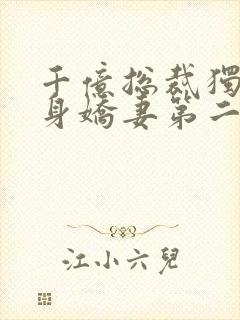 千億總裁獨
身嬌妻第二
江小六兒